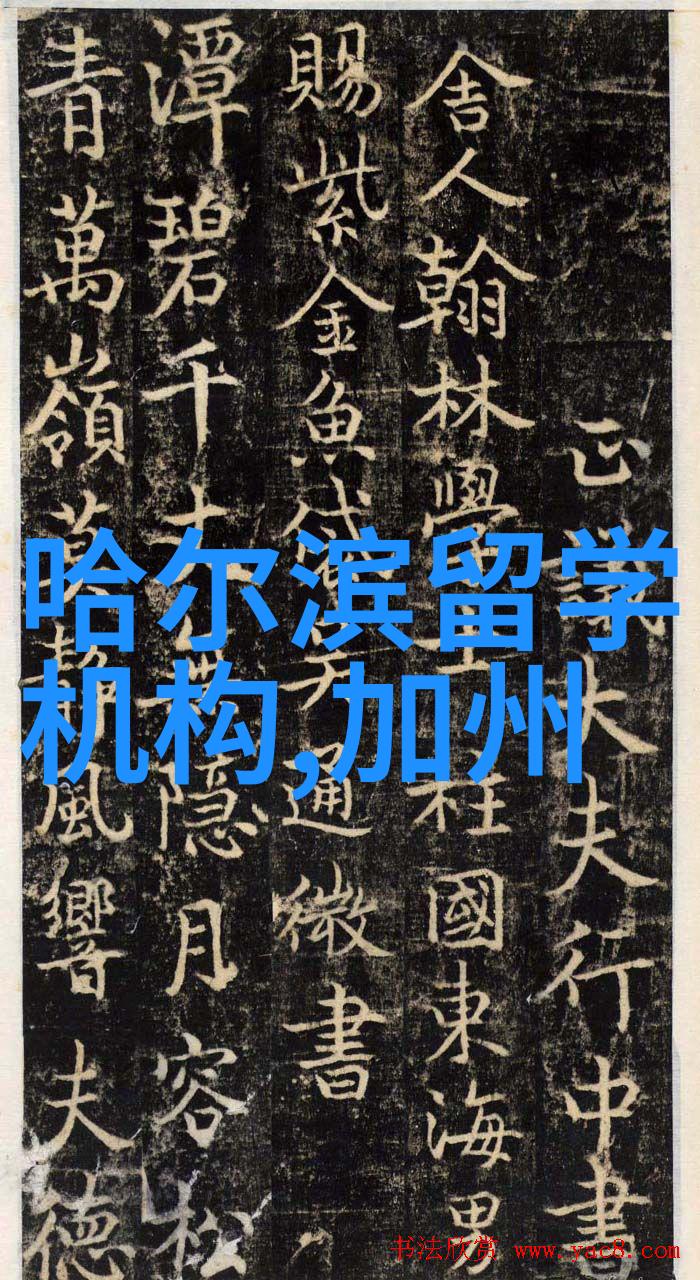 正議大夫行中書
舍人翰林學士柱國東海男
賜紫金魚袋吳通微書
潭碧千隱月容松
青萬嶺莫靜風響夫德
哈尔滨留学
机构,加州
书法欣赏 www.yac8.com